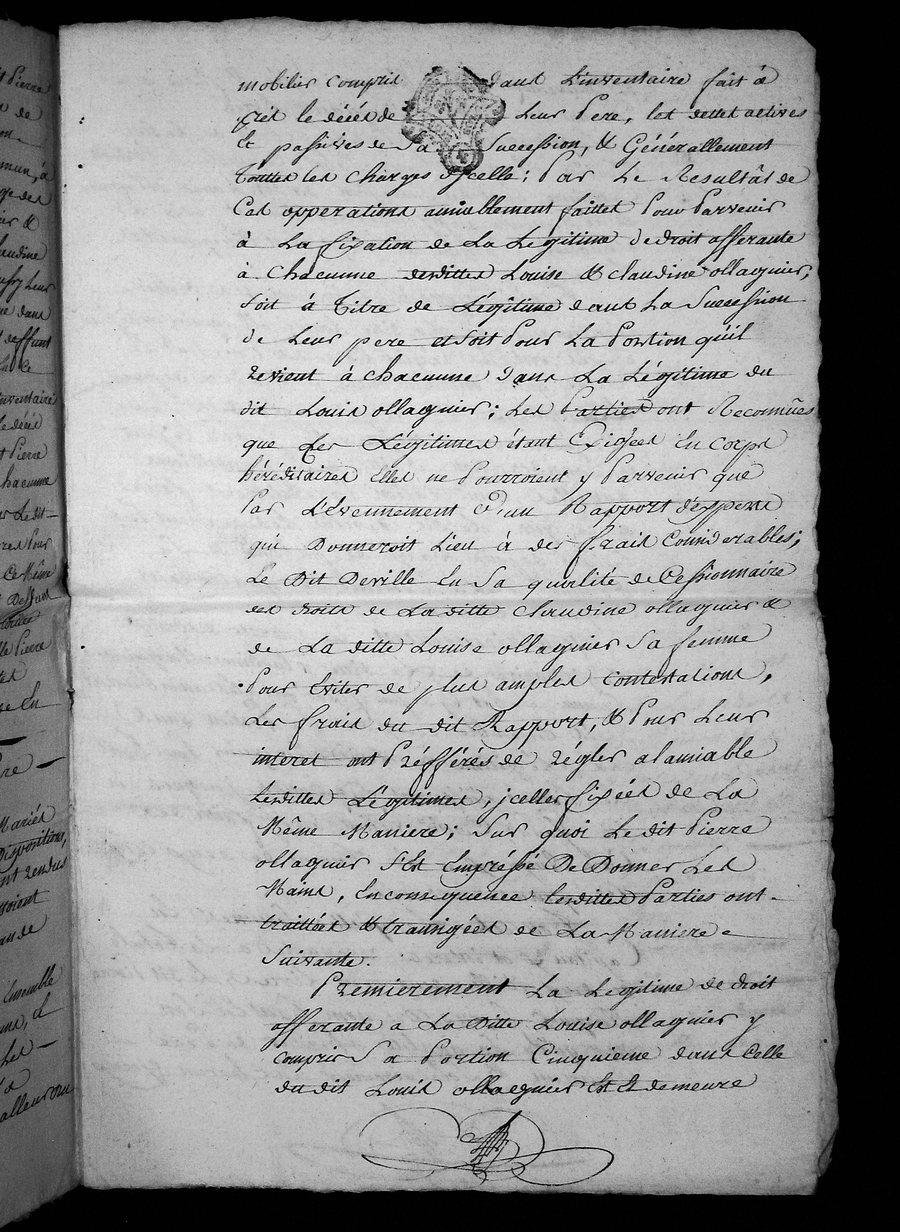 mobilier compris dans l'inventaire fait à
près le décés de Leur Pere, les dettes actives
et passives de Sa Succession, & Générallement
touttes les Charges d'jcelle; Par Le Resultât de
Ces opperations amiablement faittes Pour Parvenir
à La fixation de La Legitime de droit afferante
à Chacunne desdittes Louise & claudine ollagnier,
soit à Titre de Légitime dans La Succession
de Leur pere et soit Pour La Portion qu'il
revient à chacunne dans La Légitime du
dit Louis ollagnier; Les Parties ont Reconnües
que Les Légitimes étant Exigées En corps
héréditaires Elles ne Pourroient y Parvenir que
Par L'Evennement d'un Rapport d'experts
qui Donneroit Lieu à des frais Considerables;
Le Dit Deville En Sa qualité de Cessionnaire
des droits de La ditte Claudine ollagnier &
de La ditte Louise ollagnier Sa femme
Pour Eviter de plus amples contestations,
Les frais du dit Rapport, & Pour Leur
interet ont Préfférés de régler a lamiable
Lesdittes Légitimes, jcelles fixées de La
Même Maniere; Sur quoi Le dit Pierre
ollagnier s'Est Empréssé De Donner Les
Mains, En consequence lesdittes Parties ont
traittées & transigées de La Maniere
Suivante.
Premierement La Legitime de droit
afferante a La Ditte Louise ollagnier y
compris Sa Portion Cinquieme dans Celle
du dit Louis ollagnier Est & demeure